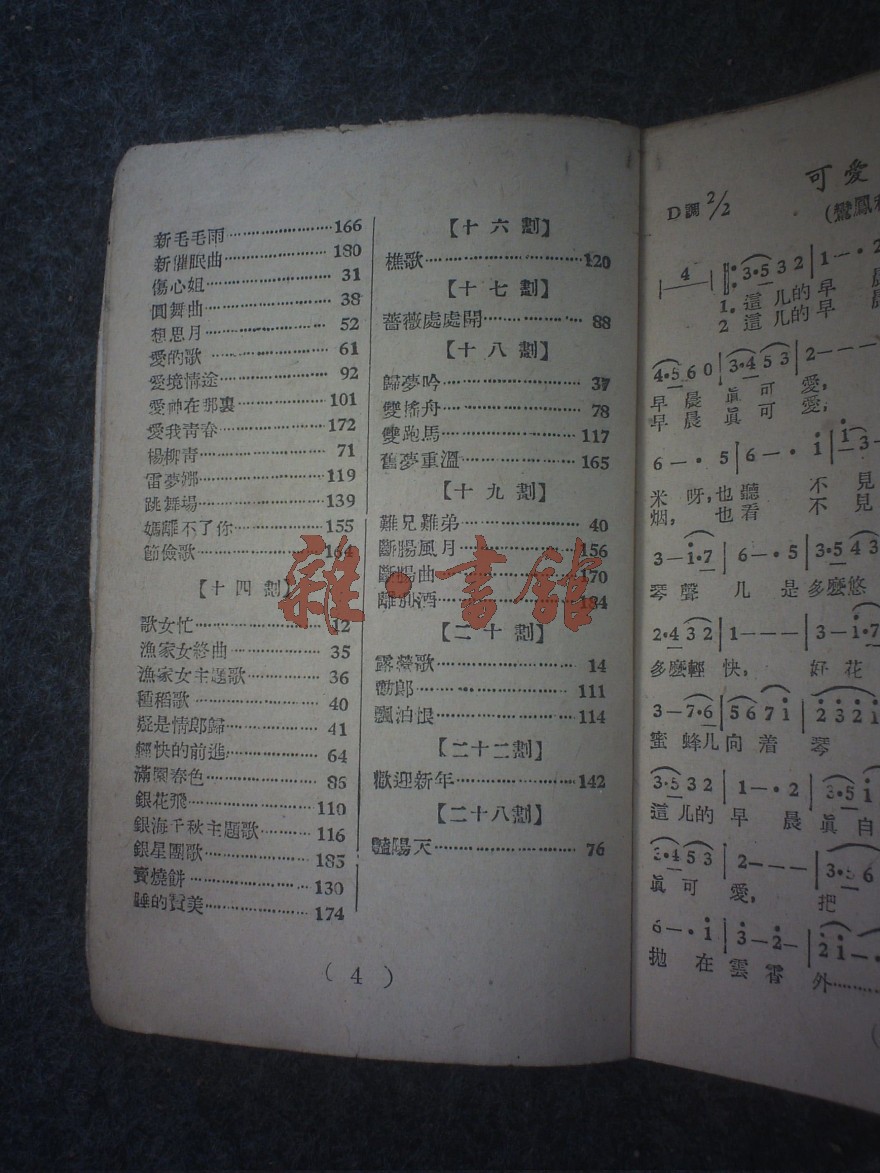 新毛毛雨……166
新催眠曲……180
傷心姐……31
圓舞曲……38
想思月……52
愛的歌……61
愛境情途……92
愛神在那裏……101
愛我靑春……172
楊柳靑……71
雷夢娜……119
跳舞場……139
媽離不了你……155
節儉歌……164
【十四劃】
歌女忙……12
漁家女終曲……35
漁家女主題歌……36
種稻歌……40
疑是情郎歸……41
輕快的前進……64
滿園春色……86
銀花飛……110
銀海千秋主題歌……116
銀星團歌……185
賣燒餅……130
睡的賛美……174
【十六劃】
樵歌……120
【十七劃】
薔薇處處開……88
【十八劃】
歸夢吟……37
雙搖舟……78
雙跑馬……117
舊夢重溫……165
【十九劃】
難兄難弟……40
斷腸風月……156
斷腸曲……170
離別酒……184
【二十劃】
露營歌……14
勸郎……111
飄泊恨……114
【二十二劃】
歡迎新年……142
【二十八劃】
豔陽天……76
(4)
雜·書館
可愛
D調 2/2
(鸞鳳和
4 3·5 3 2 1 — · 2
1. 這儿的早 晨
2 這儿的早 晨
4·5 6 0 3·4 5 3 2 — — —
早晨眞可 愛,
早晨眞可 愛;
6 — · 5 6 — · i i 3 —
米呀,也聽 不見
烟, 也看 不見
3 — i·7 6 — · 5 3·5 4 3
琴聲 儿 是多麽悠
2·4 3 2 1 — — — 3 — i·7
多麽輕 快, 好花
3 — 7·6 5 6 7 i 2 3 2 i
蜜 蜂儿向着 琴
3·5 3 2 1 — · 2 3·5 i
這儿的 早 晨眞自
3·4 5 3 2 — — — 3·5 6
眞可 愛, 把
6 — · i 3 — 2 — 2 i — ·
拋 在雲霄 外……